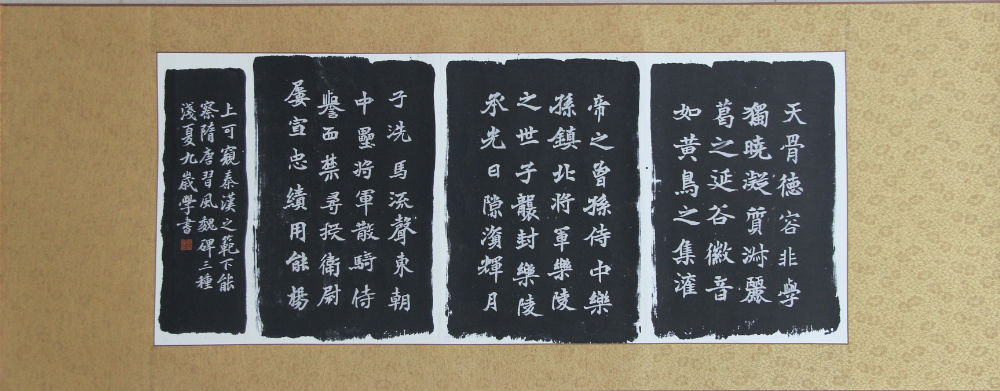 天骨德容非學
獨曉凝質淵麗
葛之延谷徽音
如黃鳥之集灌
帝之曾孫侍中樂
孫鎮北將軍樂陵
之世子襲封樂陵
承光日隙濱輝月
子洗馬流聲東朝
中壘將軍散騎侍
譽而禁尋授衛尉
屢宣忠績用能揚
上可窺秦漢之範下能
察隋唐習風魏碑三種
淺夏九歲學書